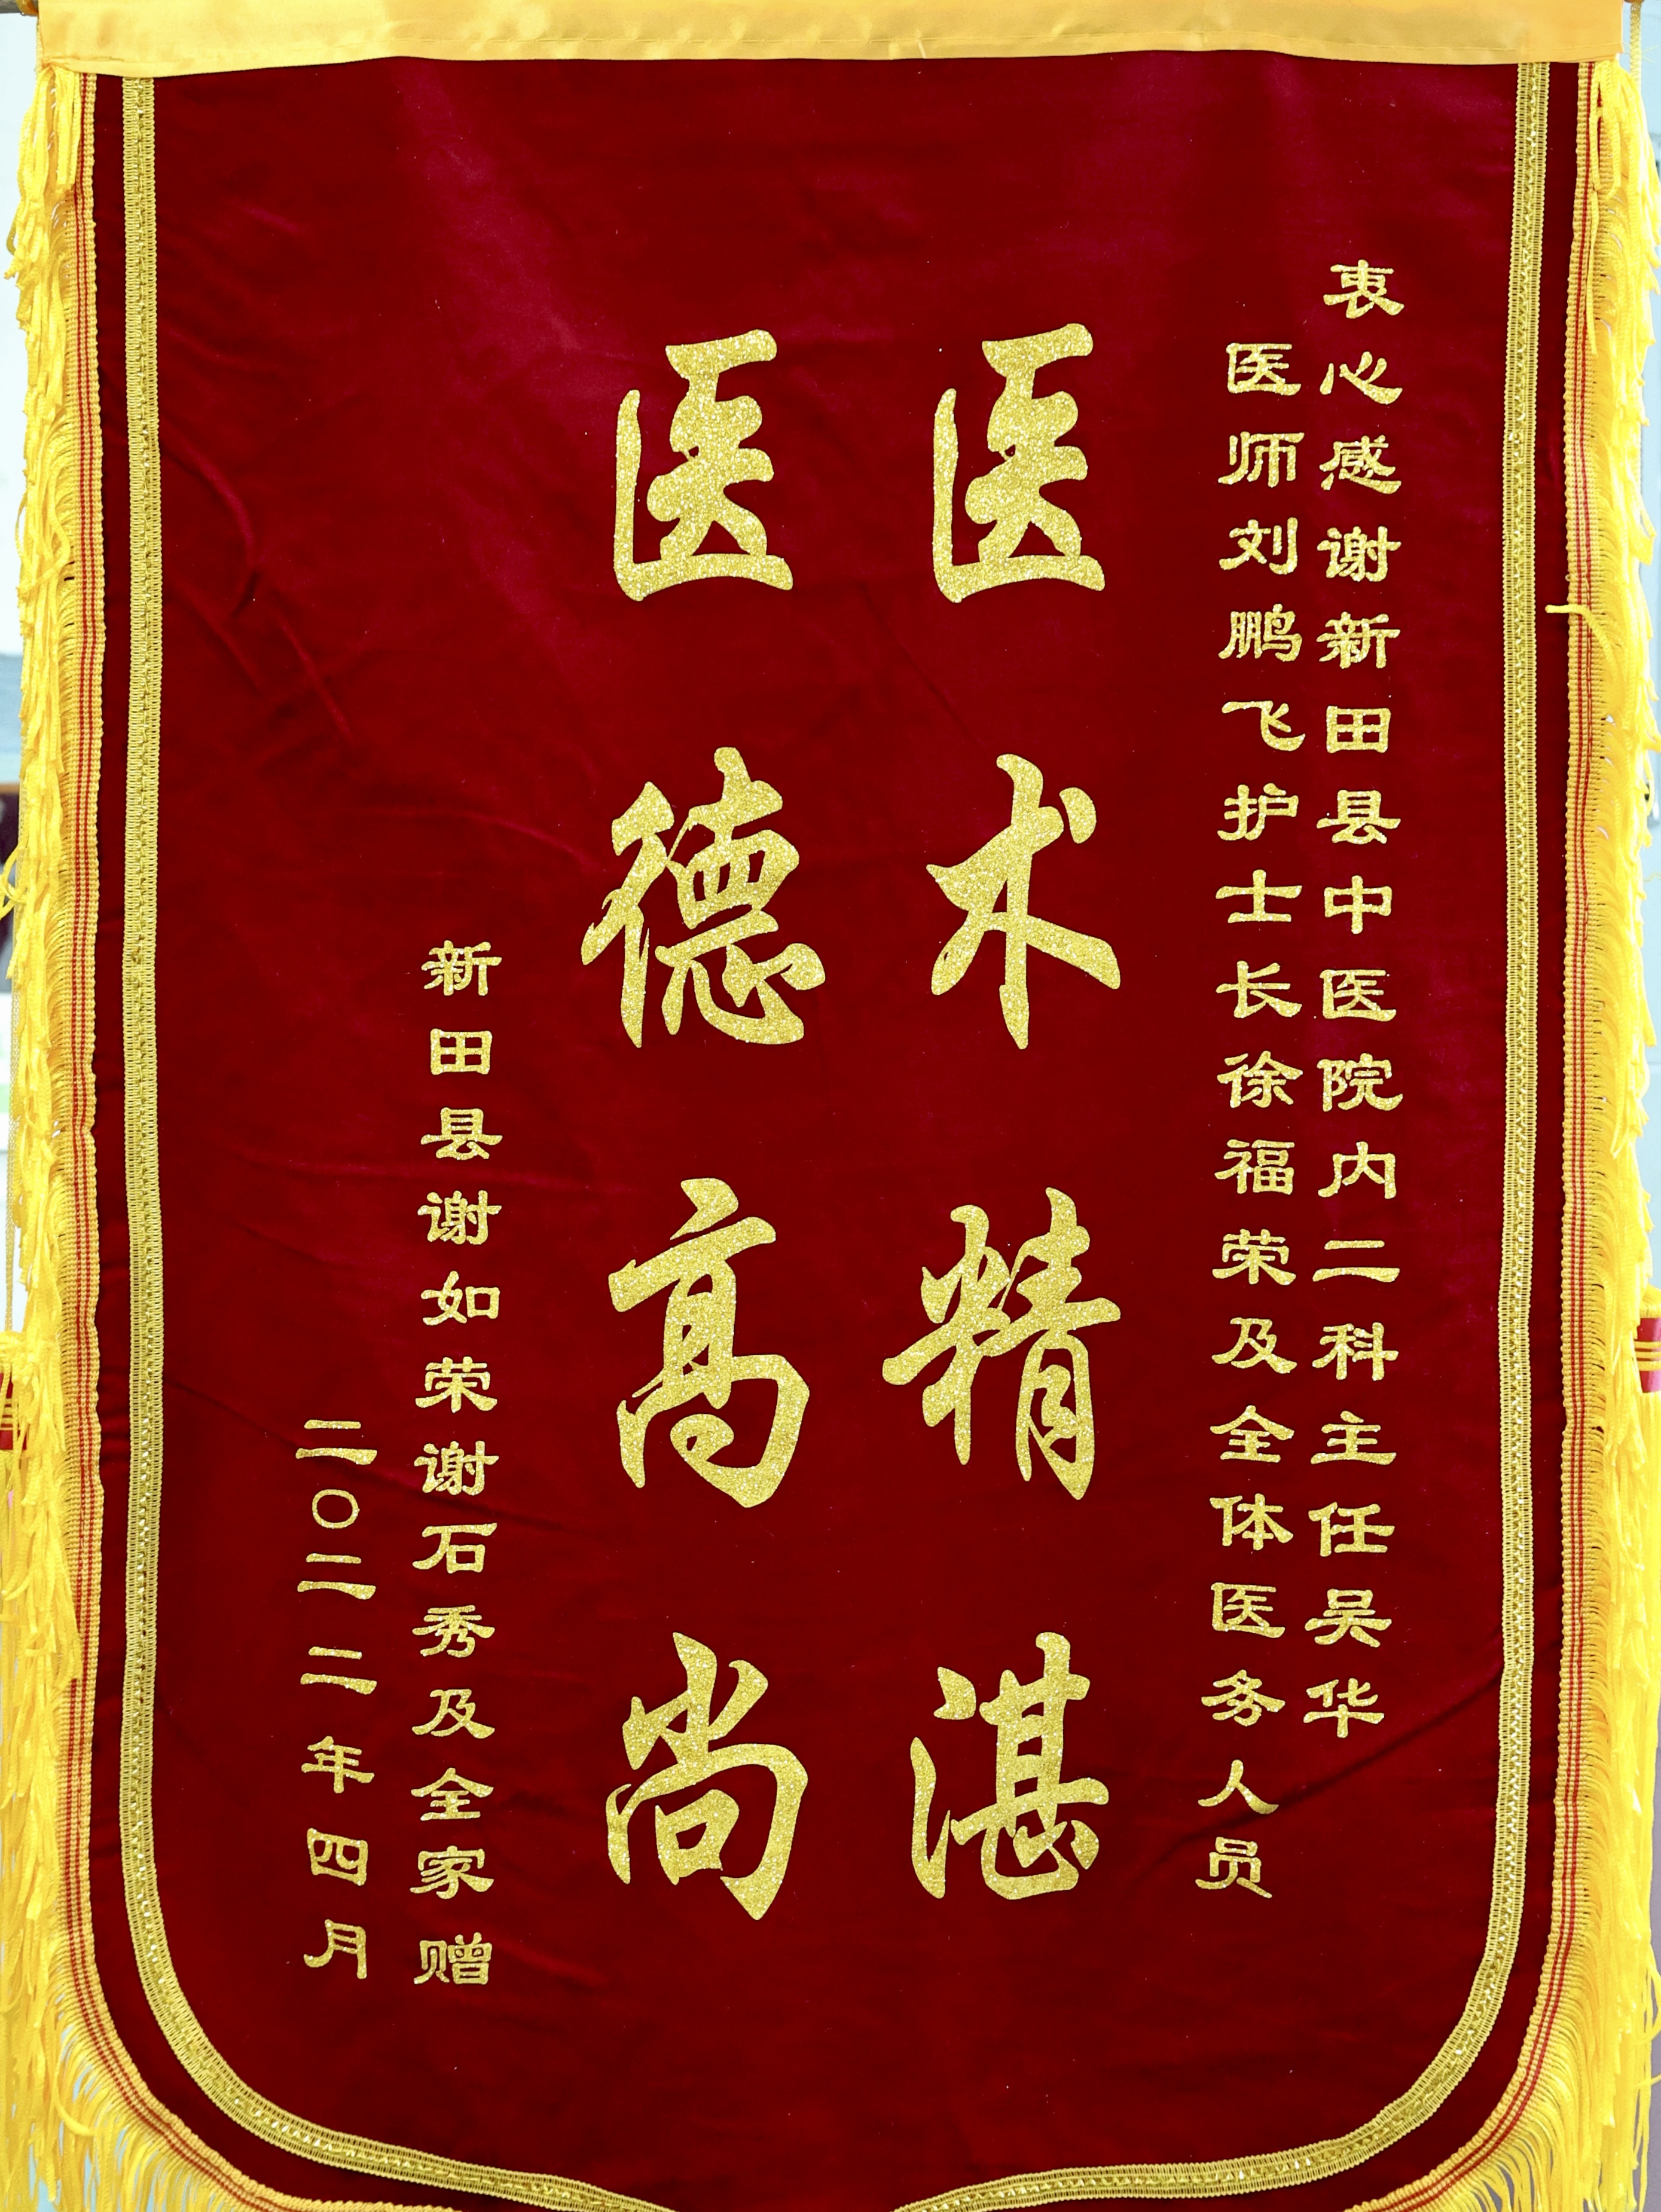 衷心感谢新田县中医院内二科主任吴华
医师刘鹏飞护士长徐福荣及全体医务人员
医术精湛
医德高尚
新田县谢如荣谢石秀及全家赠
二〇二二年四月